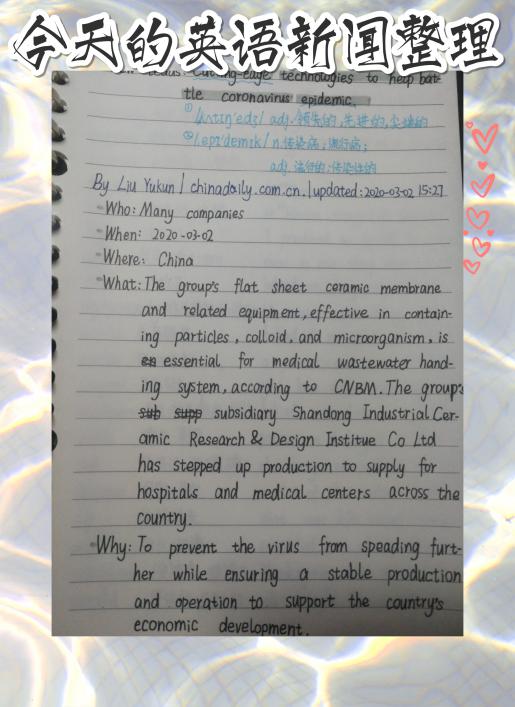 今天的英语新闻整理
Cutting-edge technologies to help bat-
tle coronavirus epidemic.
① /ˌkʌtɪŋ'edʒ/ adj.领先的,先进的,尖端的
② /ˌepɪ'demɪk/ n.传染病;流行病;
adj.流行的;传染性的
By Liu Yukun / chinadaily.com.cn.|updated:2020-03-02 15:27
Who: Many companies
When: 2020-03-02
Where: China
What: The group's flat sheet ceramic membrane
and related equipment, effective in contain-
ing particles, colloid, and microorganism, is
essential for medical wastewater hand-
ing system, according to CNBM. The group's
sub supp subsidiary Shandong Industrial Cer-
amic Research & Design Institue Co Ltd
has stepped up production to supply for
hospitals and medical centers across the
country.
Why: To prevent the virus from speading furt-
her while ensuring a stable production
and operation to support the country's
economic development.